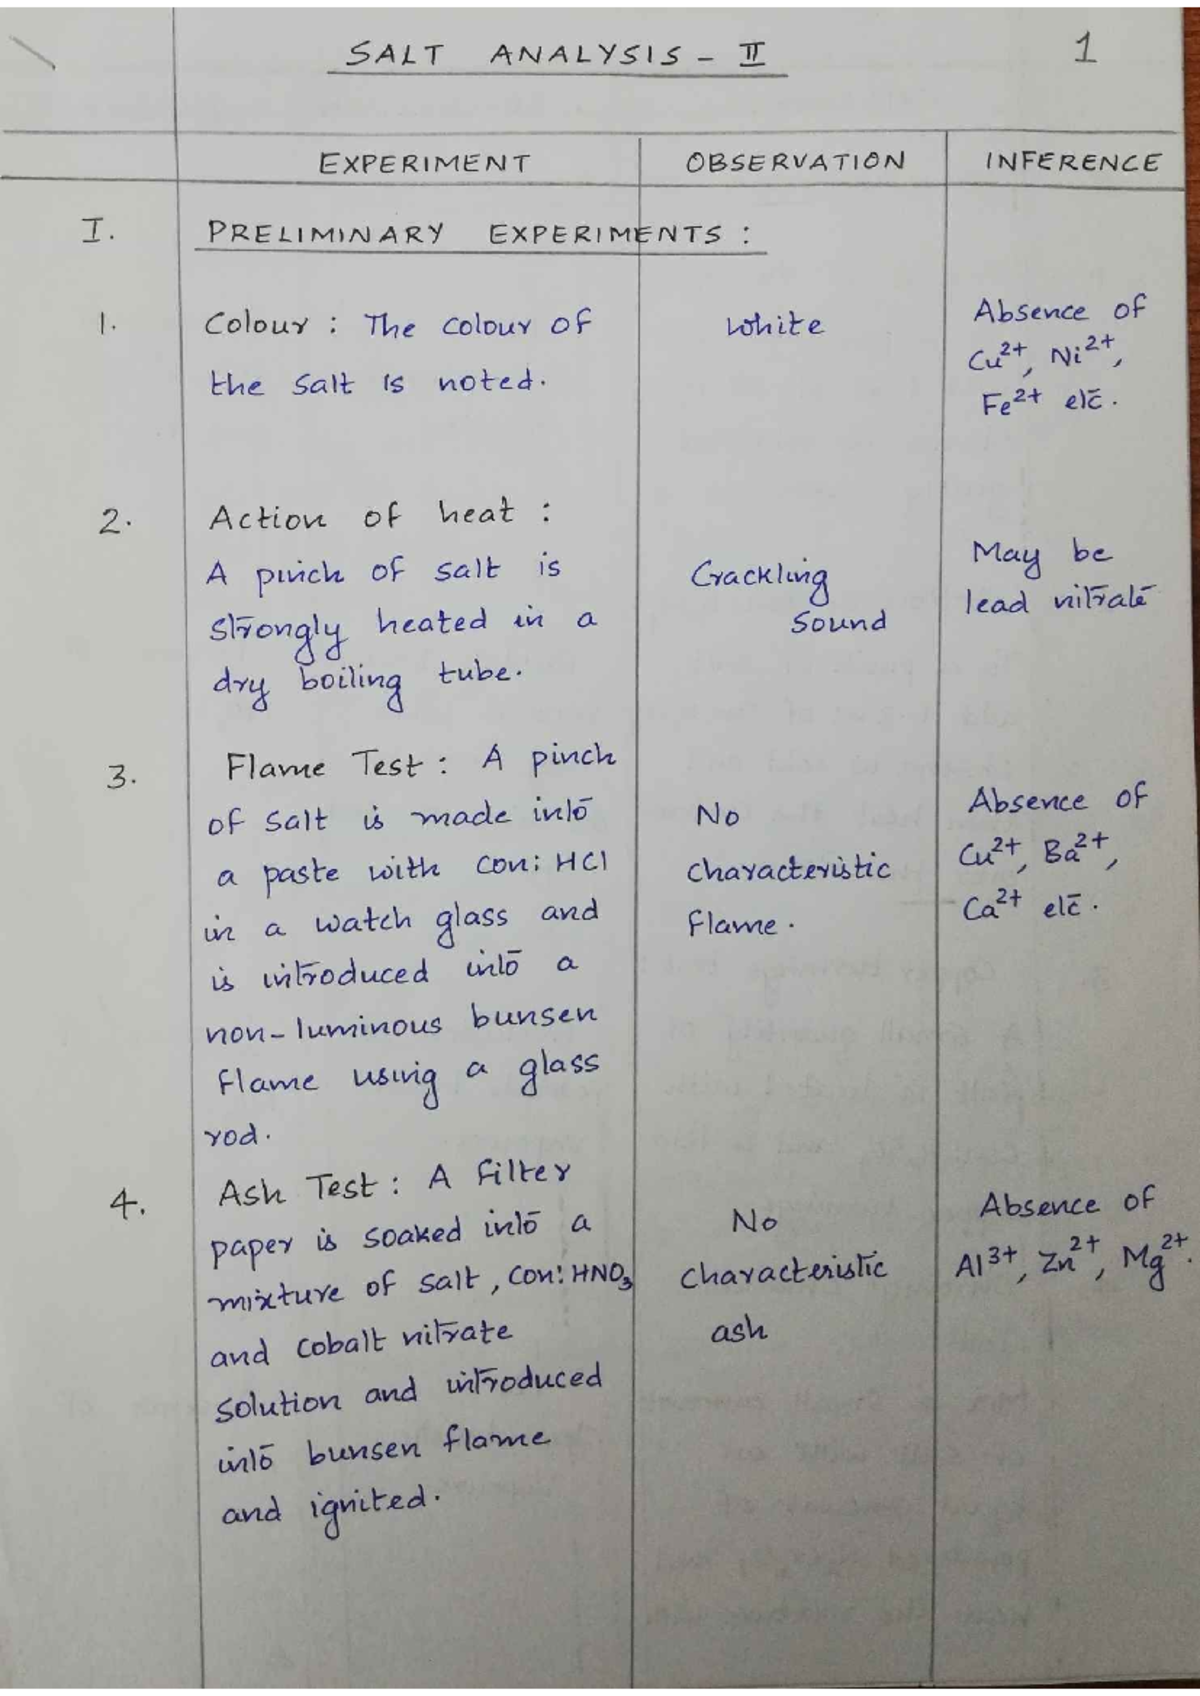 SALT ANALYSIS - II
1
EXPERIMENT OBSERVATION INFERENCE
I. PRELIMINARY EXPERIMENTS :
1. Colour : The colour of
the salt is noted.
White
Absence of
Cu2+, Ni2+,
Fe2+ etc.
2. Action of heat :
A pinch of salt is
strongly heated in a
dry boiling tube.
Crackling
sound
May be
lead nitrate
3. Flame Test : A pinch
of salt is made into
a paste with con: HCl
in a watch glass and
is introduced into a
non-luminous bunsen
flame using a glass
rod.
No
characteristic
flame.
Absence of
Cu2+, Ba2+,
Ca2+ etc.
4. Ash Test : A filter
paper is soaked into a
mixture of salt, con: HNO3
and cobalt nitrate
solution and introduced
into bunsen flame
and ignited.
No
characteristic
ash
Absence of
Al3+, Zn2+, Mg2+.